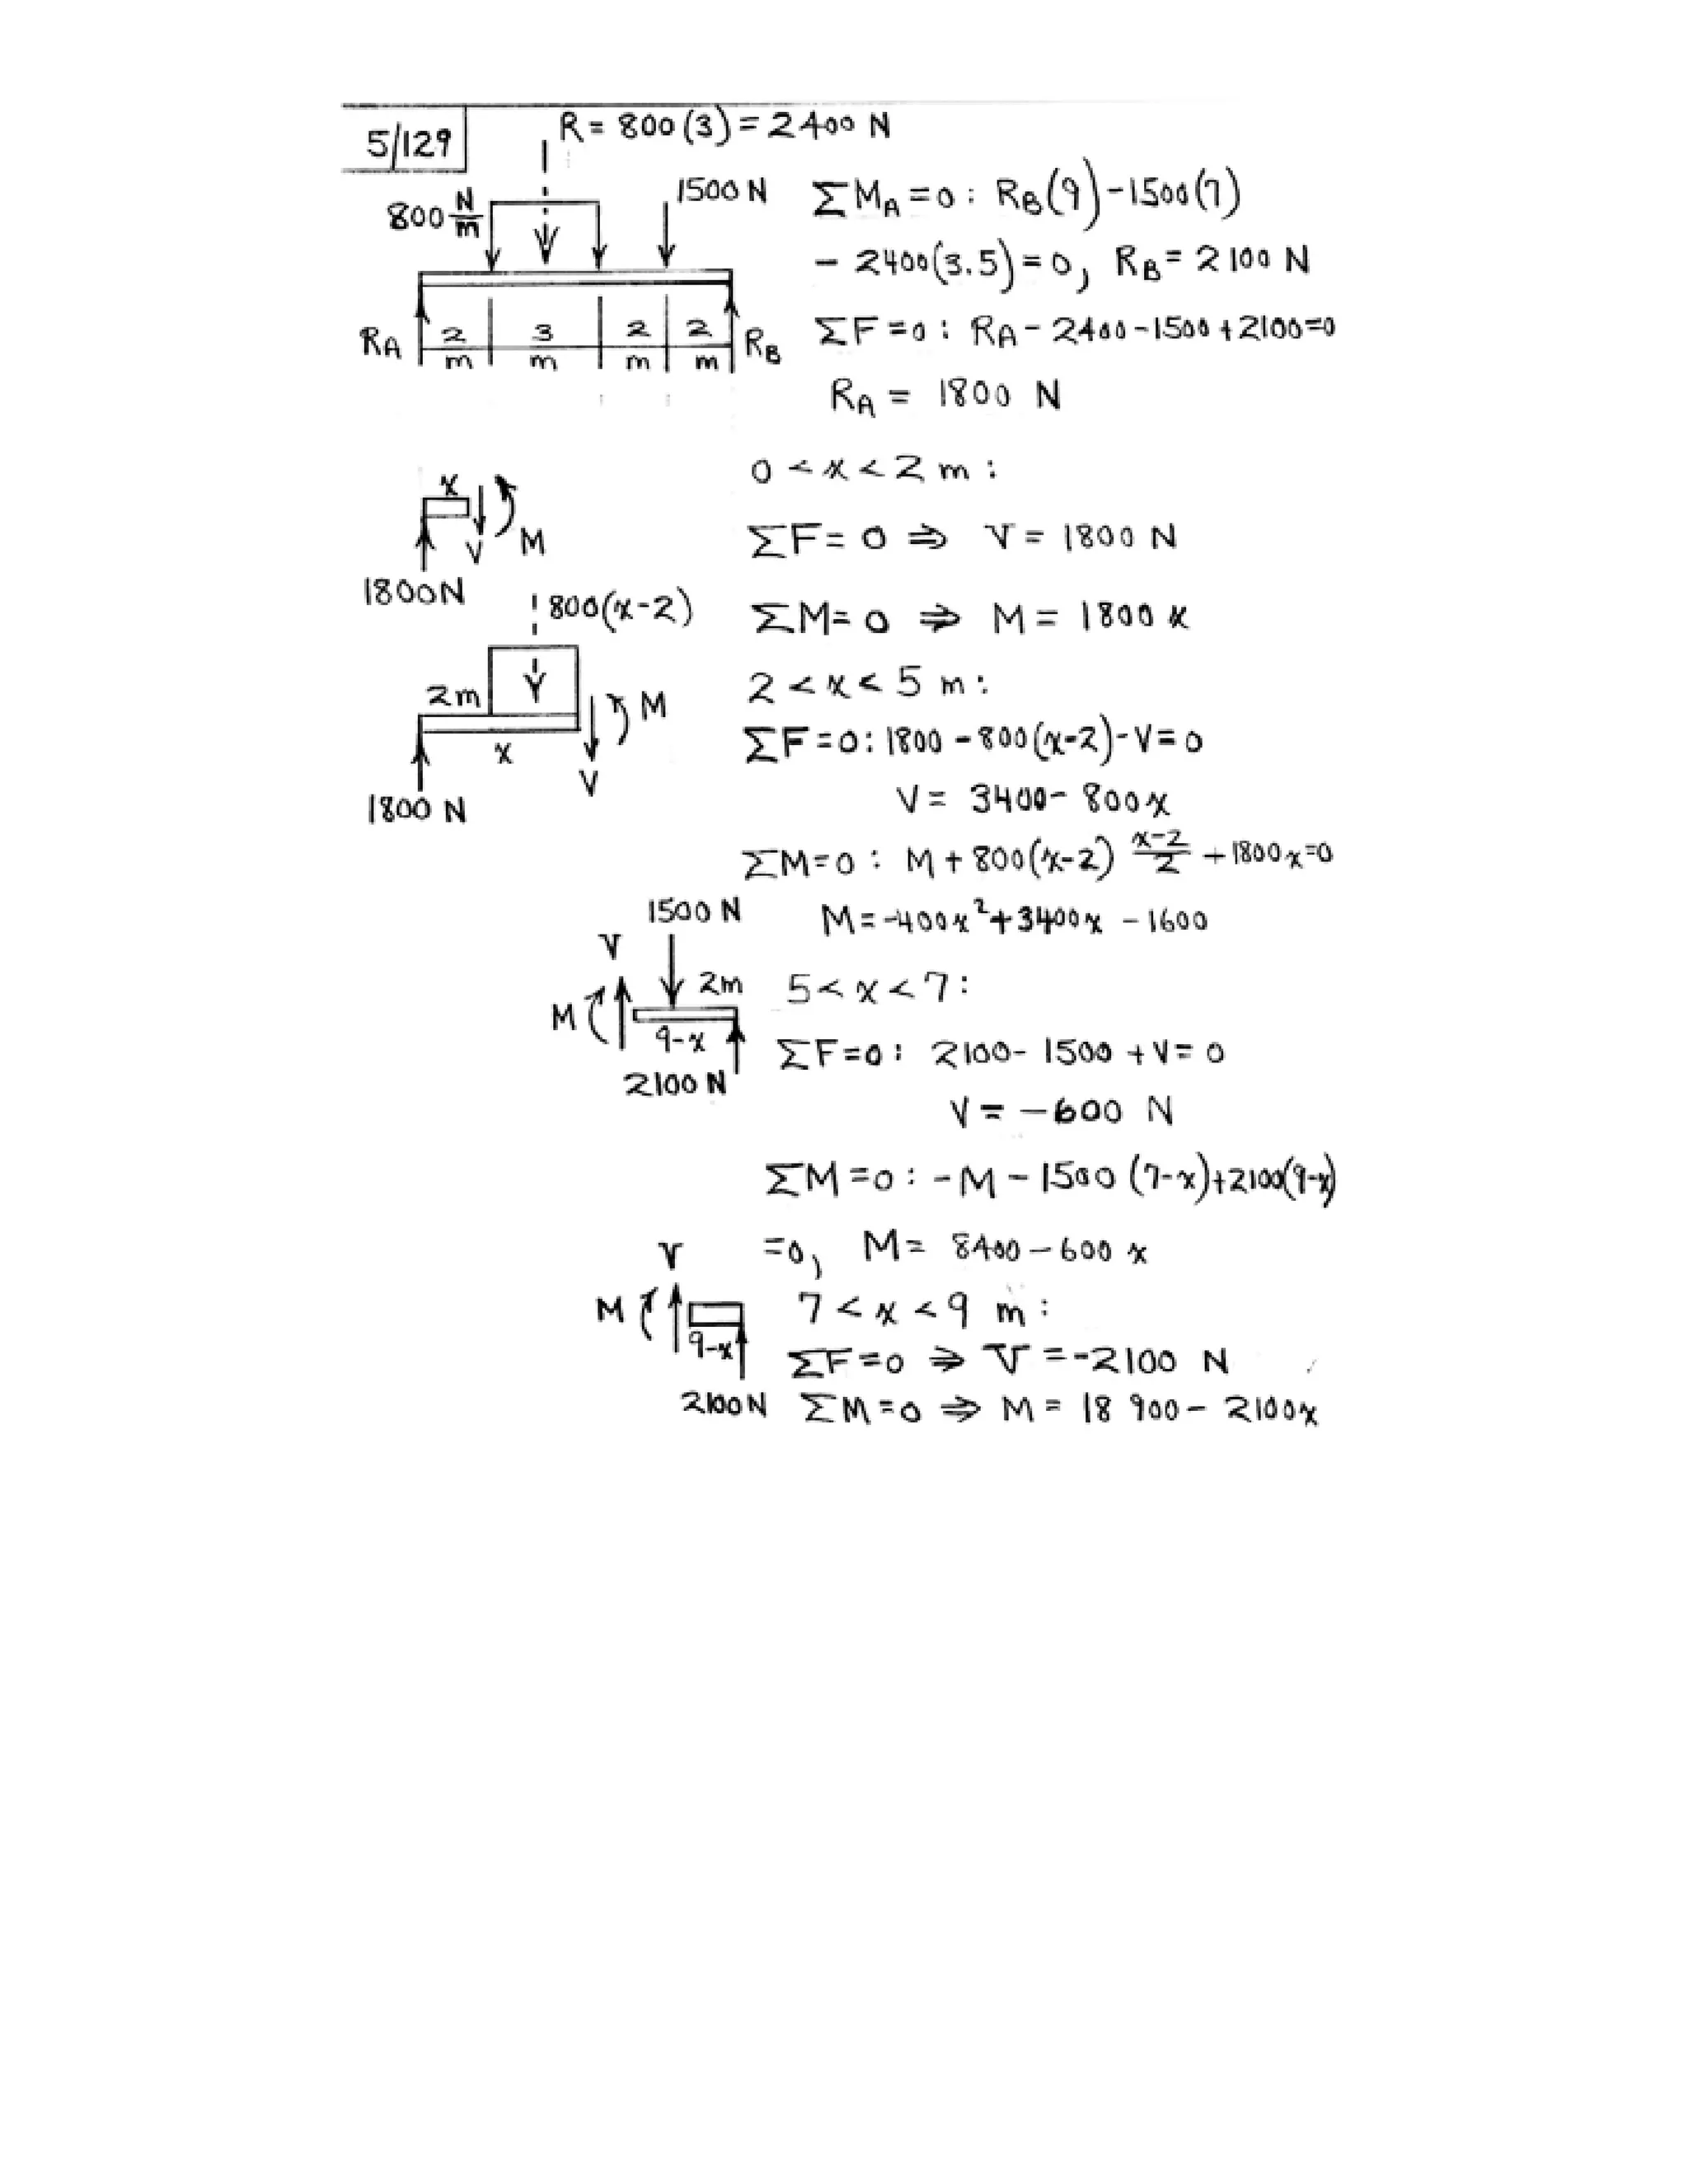 5/129
R = 800 (3) = 2400 N
800 N/m
1500 N
ΣM_A = 0 : R_B(9) - 1500(7)
- 2400(3.5) = 0, R_B = 2100 N
R_A 2 m 3 m 2 m 2 m R_B
ΣF = 0 : R_A - 2400 - 1500 + 2100 = 0
R_A = 1800 N
0 < x < 2 m :
x
V M
1800N
ΣF = 0 ⇒ V = 1800 N
ΣM = 0 ⇒ M = 1800 x
800(x-2)
2m
M
x
V
1800 N
2 < x < 5 m :
ΣF = 0 : 1800 - 800(x-2) - V = 0
V = 3400 - 800x
ΣM = 0 : M + 800(x-2) (x-2)/2 + 1800x = 0
M = -400x² + 3400x - 1600
1500 N
V
2m
M
9-x
2100 N
5 < x < 7 :
ΣF = 0 : 2100 - 1500 + V = 0
V = -600 N
ΣM = 0 : -M - 1500 (7-x) + 2100(9-x)
= 0, M = 8400 - 600 x
V
M
9-x
2100N
7 < x < 9 m :
ΣF = 0 ⇒ V = -2100 N
ΣM = 0 ⇒ M = 18 900 - 2100x